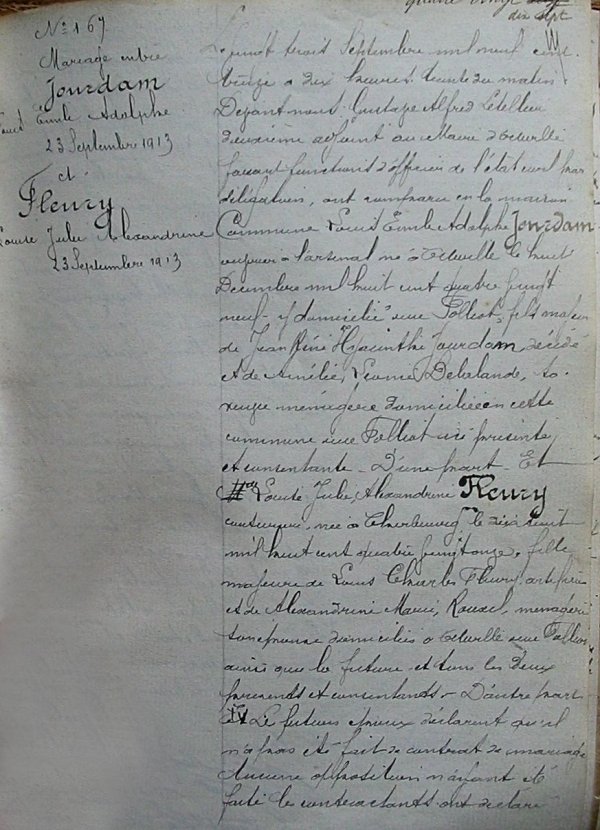 quatre vingt
dix sept
N° 167
Mariage entre
Jourdam
Louis Emile Adolphe
23 Septembre 1913
et
Fleury
Louise Julie Alexandrine
23 Septembre 1913
Le vingt trois Septembre mil neuf cent
treize à dix heures trente du matin
Devant nous Gustave Alfred Letellier
deuxième adjoint au Maire d'Octeville
faisant fonctions d'officier de l'état civil par
délégation, ont comparu en la maison
Commune Louis Emile Adolphe Jourdam
à l'arsenal né à Octeville le huit
Décembre mil huit cent quatre vingt
neuf y domicilié rue Folliot, fils majeur
de Jean René Hyacinthe Jourdam, décédé
et de Amélie, Léonie, Delalande, sa
veuve ménagère domiciliée en cette
commune rue Folliot ici présente
et consentante - D'une part - Et
Louise Julie Alexandrine Fleury
couturière, née à Cherbourg le dix huit
mil huit cent quatre vingt onze, fille
majeure de Louis Charles Fleury, artificier
et de Alexandrine Marie, Rouxel, ménagère
son épouse domiciliés à Octeville rue Folliot
ainsi que la future et tous les deux
présents et consentants - D'autre part
Les futurs époux déclarent qu'il
n'a pas été fait de contrat de mariage
Aucune opposition n'ayant été
faite les contractants ont déclaré